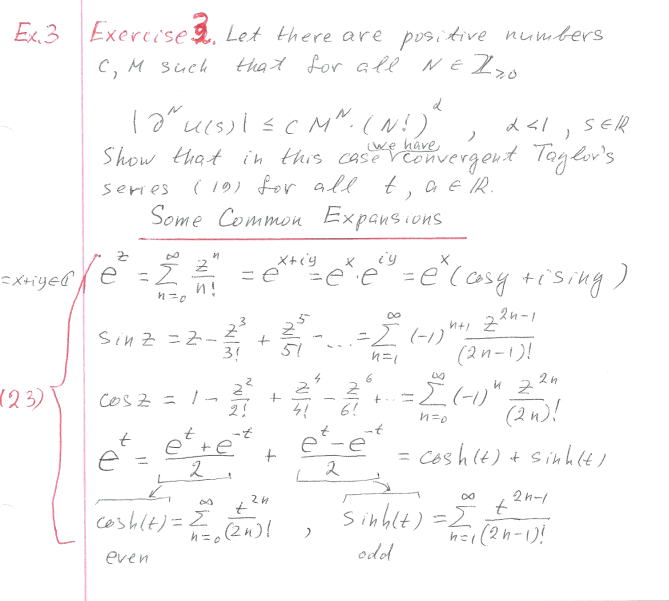 Ex.3 Exercise 3. Let there are positive numbers
C, M such that for all N ∈ ℤ≥0
|∂^N u(s)| ≤ C M^N · (N!)^α , α<1 , s∈ℝ
we have
Show that in this case convergent Taylor's
series (19) for all t, a ∈ ℝ.
Some Common Expansions
=x+iy∈ℂ e^z = ∑_{n=0}^∞ z^n/n! = e^{x+iy} = e^x · e^{iy} = e^x (cosy + i siny)
sin z = z - z^3/3! + z^5/5! - ... = ∑_{n=1}^∞ (-1)^{n+1} z^{2n-1}/(2n-1)!
(23) cos z = 1 - z^2/2! + z^4/4! - z^6/6! + ... = ∑_{n=0}^∞ (-1)^n z^{2n}/(2n)!
e^t = (e^t + e^{-t})/2 + (e^t - e^{-t})/2 = cosh(t) + sinh(t)
cosh(t) = ∑_{n=0}^∞ t^{2n}/(2n)! , sinh(t) = ∑_{n=1}^∞ t^{2n-1}/(2n-1)!
even odd